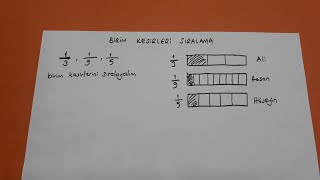 BİRİM KESİRLERİ SIRALAMA
1/3 , 1/9 , 1/5
birim kesirlerini sıralayalım
1/3 Ali
1/9 Hasan
1/5 Hüseyin